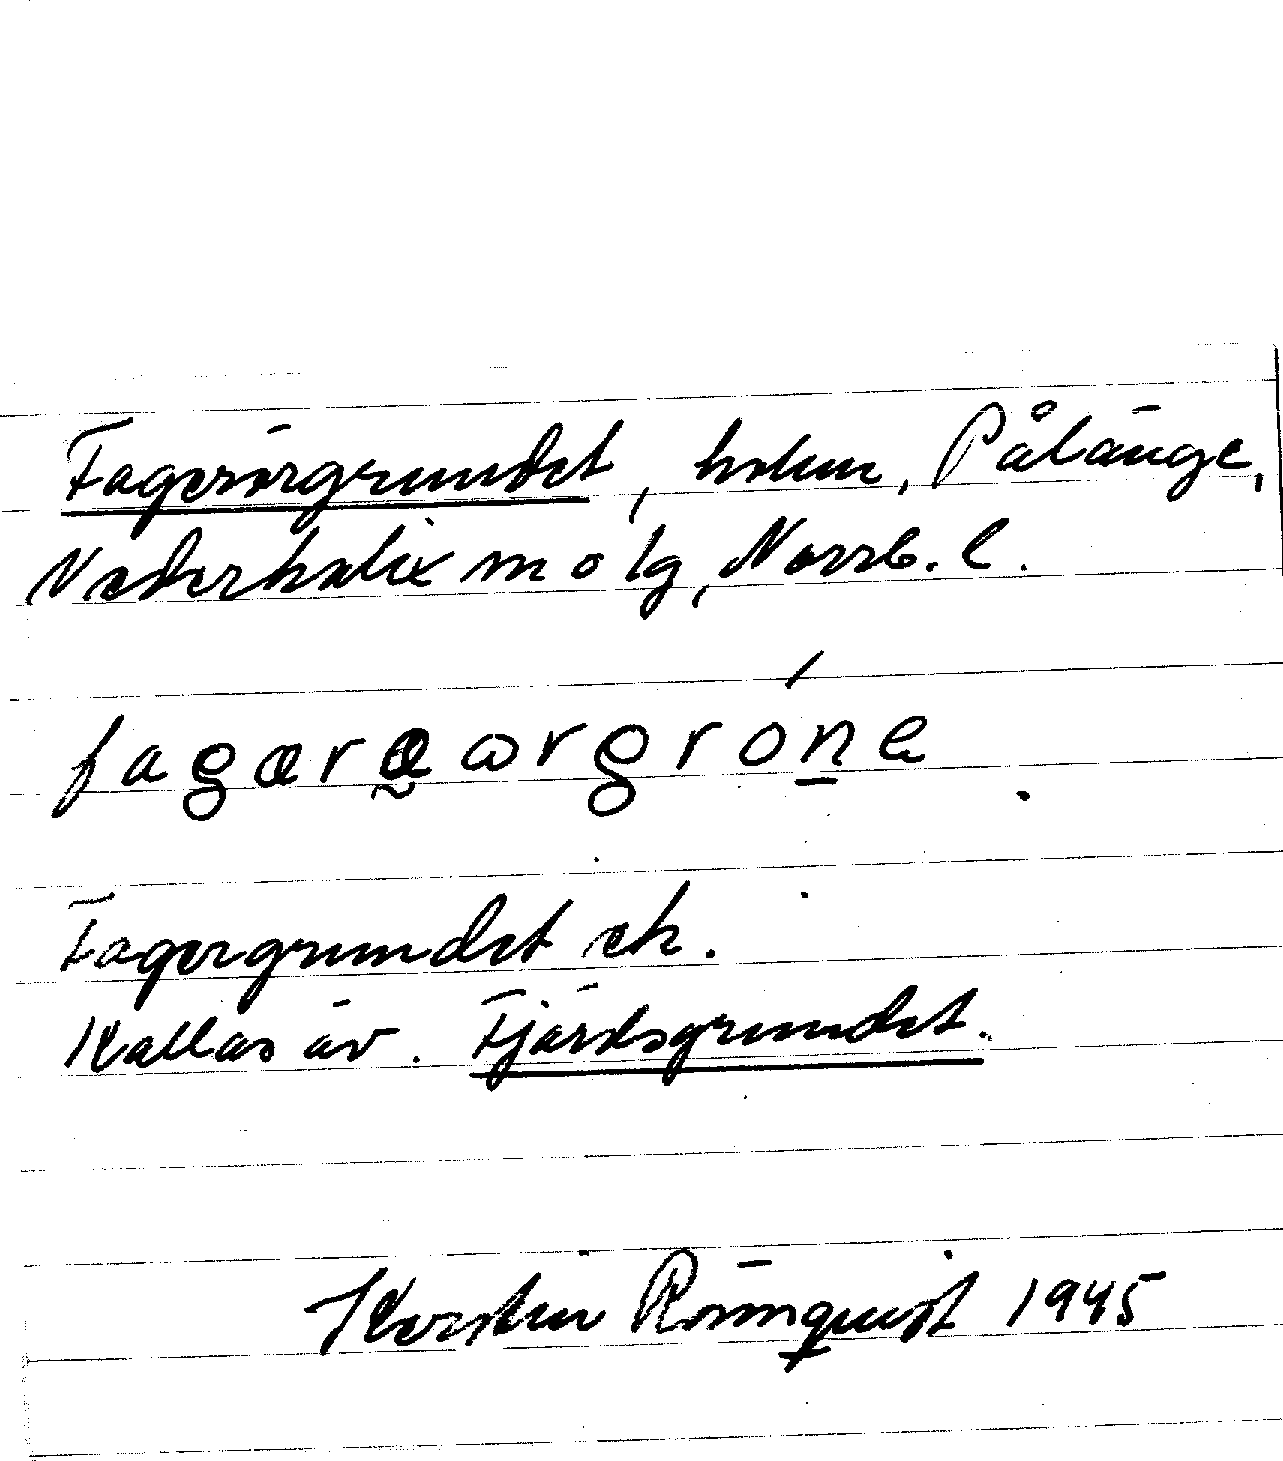 Fagerörgrundet, holme, Pålänge,
Nederkalix sn o lg, Norrb. l.
Fagergrundet ek.
Kallas äv. Fjärdsgrundet.
Kerstin Rönnquist 1945